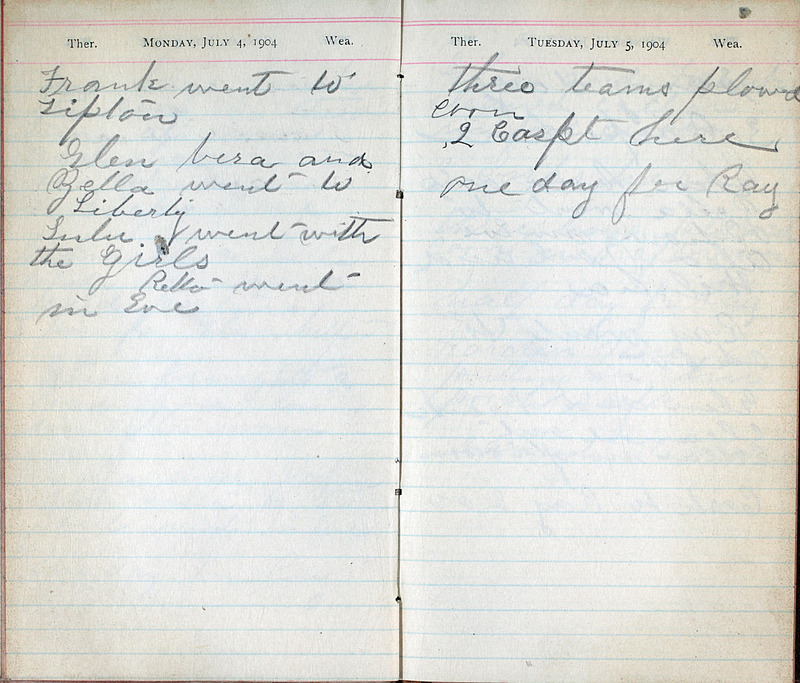 Ther. MONDAY, JULY 4, 1904 Wea.
Frank went to
Tipton
Glen Vera and
Zella went to
Liberty
Lulu went with
the Girls
went
in Eve
Ther. TUESDAY, JULY 5, 1904 Wea.
three teams plowed
corn
2 here
one day for Ray